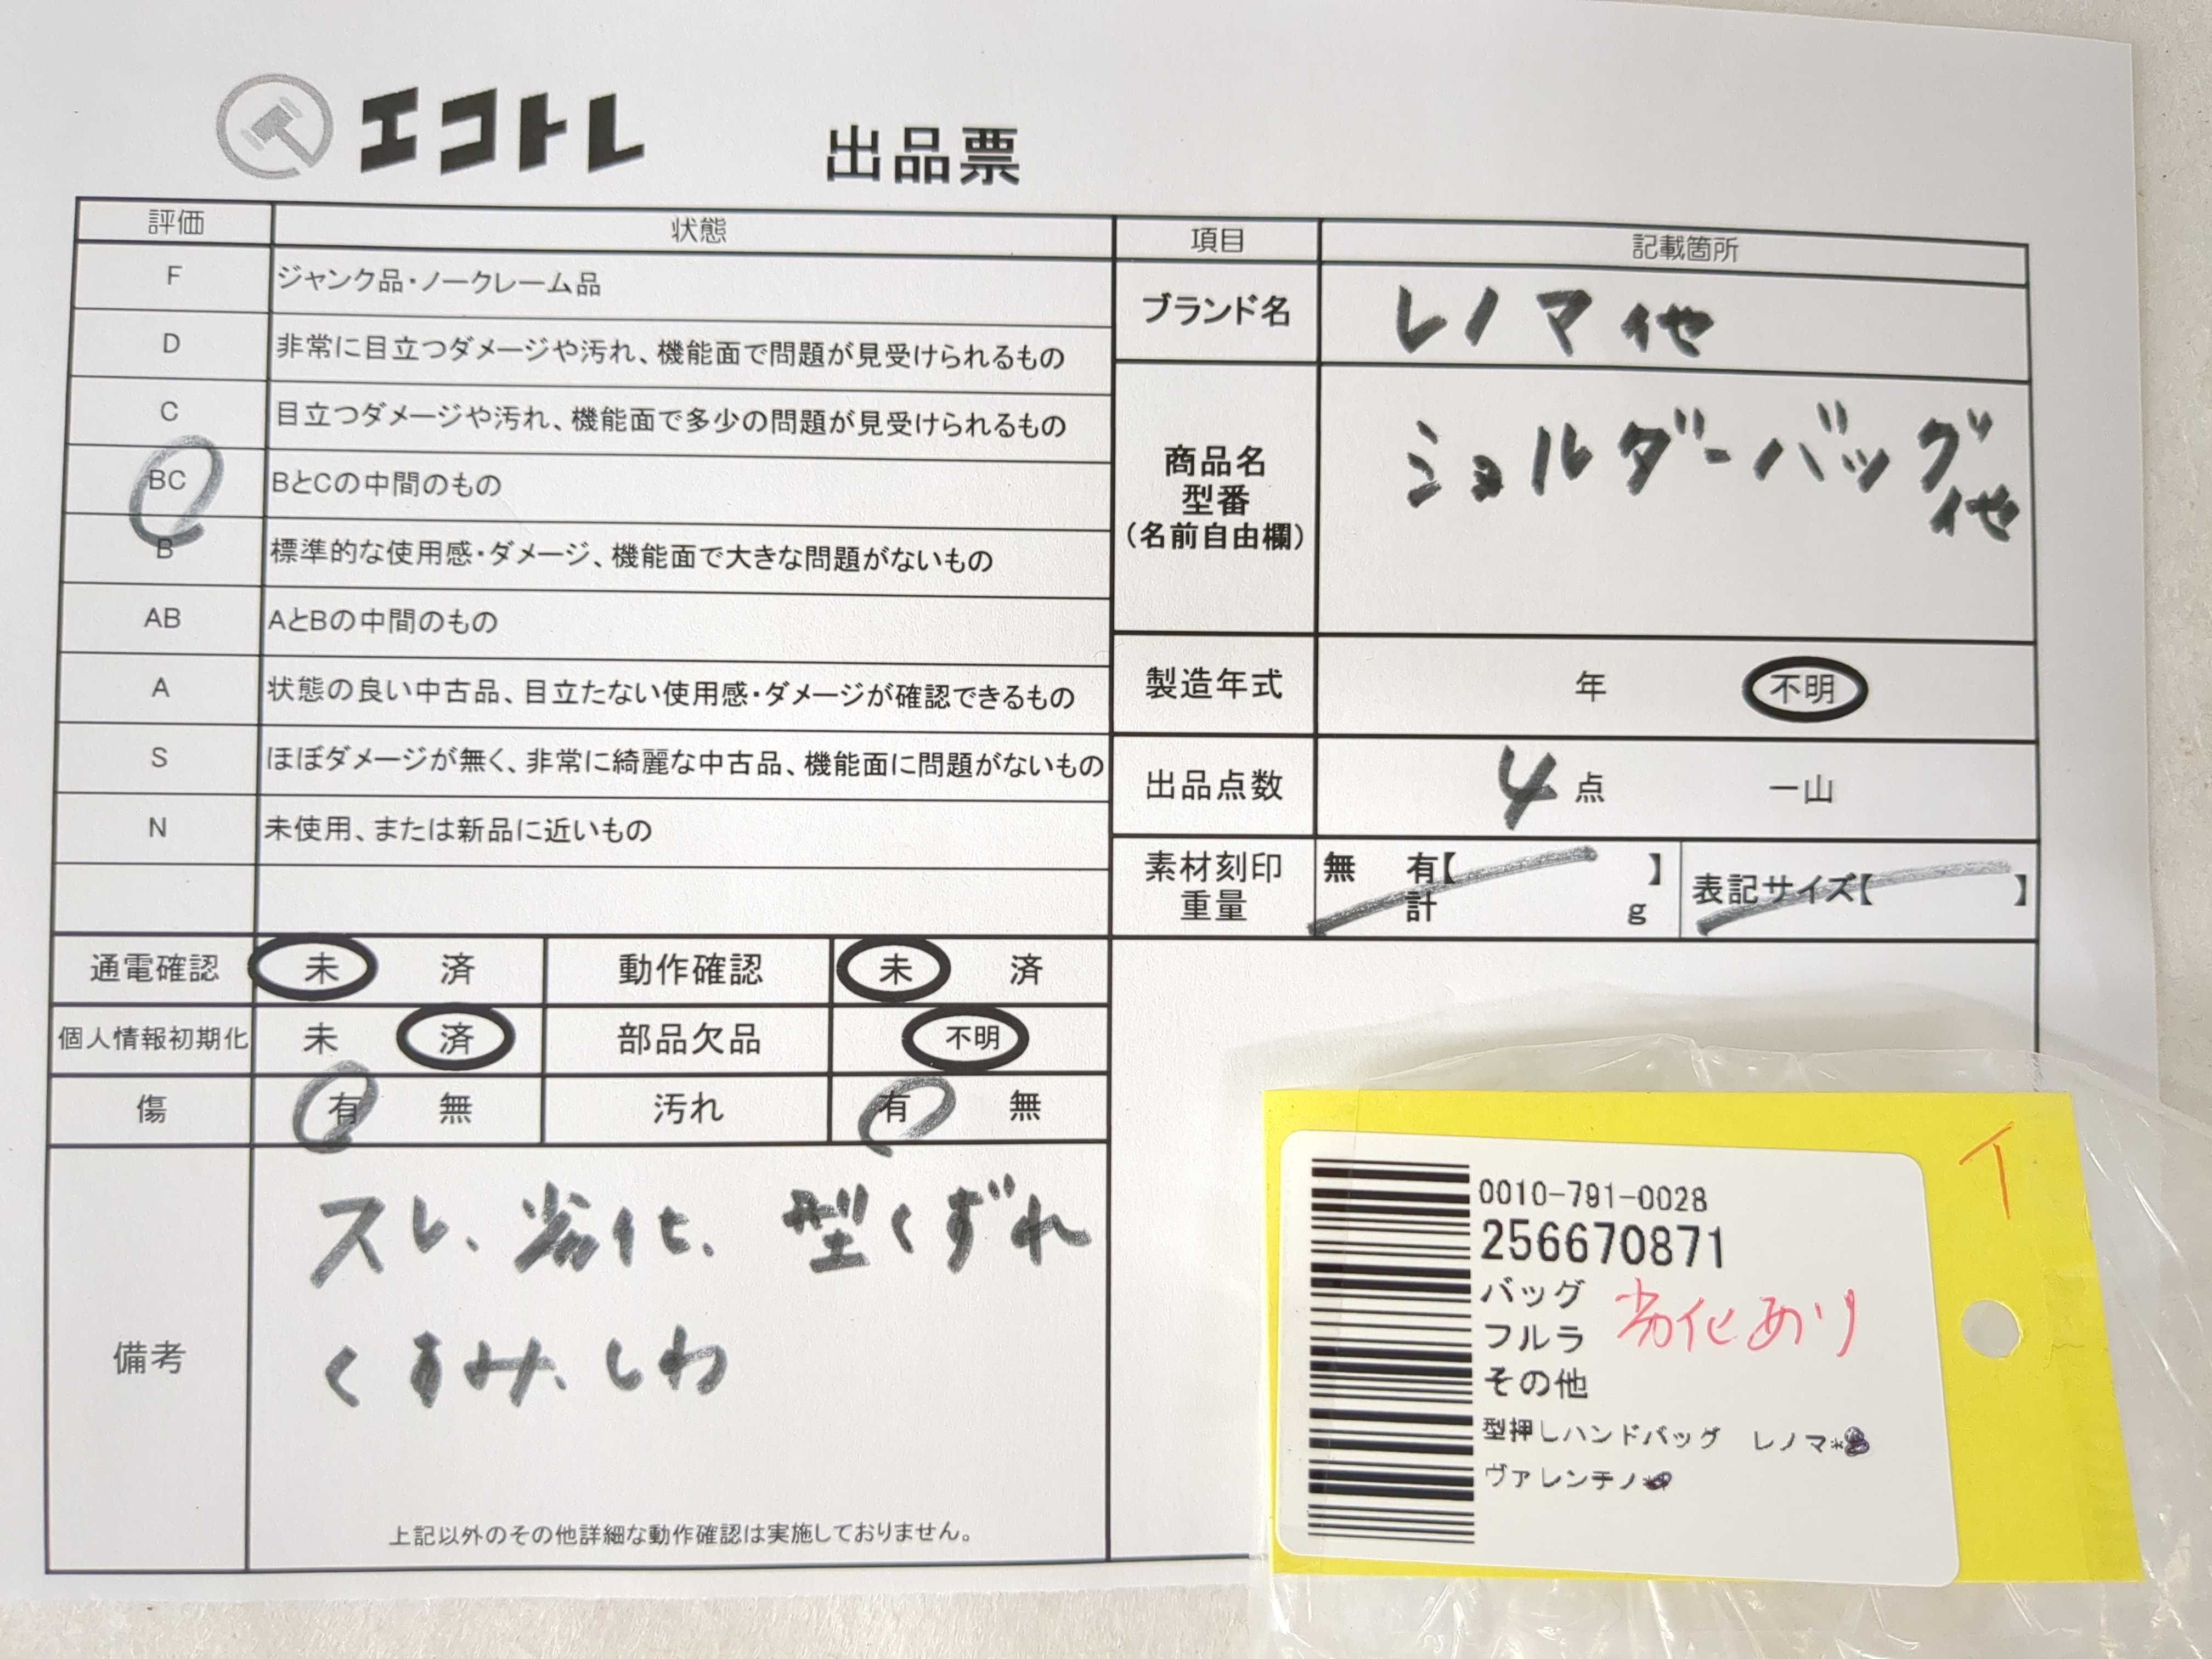 エコトレ 出品票
評価 状態
F ジャンク品・ノークレーム品
D 非常に目立つダメージや汚れ、機能面で問題が見受けられるもの
C 目立つダメージや汚れ、機能面で多少の問題が見受けられるもの
BC BとCの中間のもの
B 標準的な使用感・ダメージ、機能面で大きな問題がないもの
AB AとBの中間のもの
A 状態の良い中古品、目立たない使用感・ダメージが確認できるもの
S ほぼダメージが無く、非常に綺麗な中古品、機能面に問題がないもの
N 未使用、または新品に近いもの
項目 記載箇所
ブランド名 レノマ他
商品名 ショルダーバッグ
型番 他
(名前自由欄)
製造年式 年 不明
出品点数 4点 一山
素材刻印 無 有【 】 表記サイズ【 】
重量 計 g
通電確認 未 済 動作確認 未 済
個人情報初期化 未 済 部品欠品 不明
傷 有 無 汚れ 有 無
備考
スレ、劣化、型くずれ
くすみ、しわ
上記以外のその他詳細な動作確認は実施しておりません。
イ
0010-791-0028
256670871
バッグ
フルラ 劣化あり
その他
型押しハンドバッグ レノマ*
ヴァレンチノ*